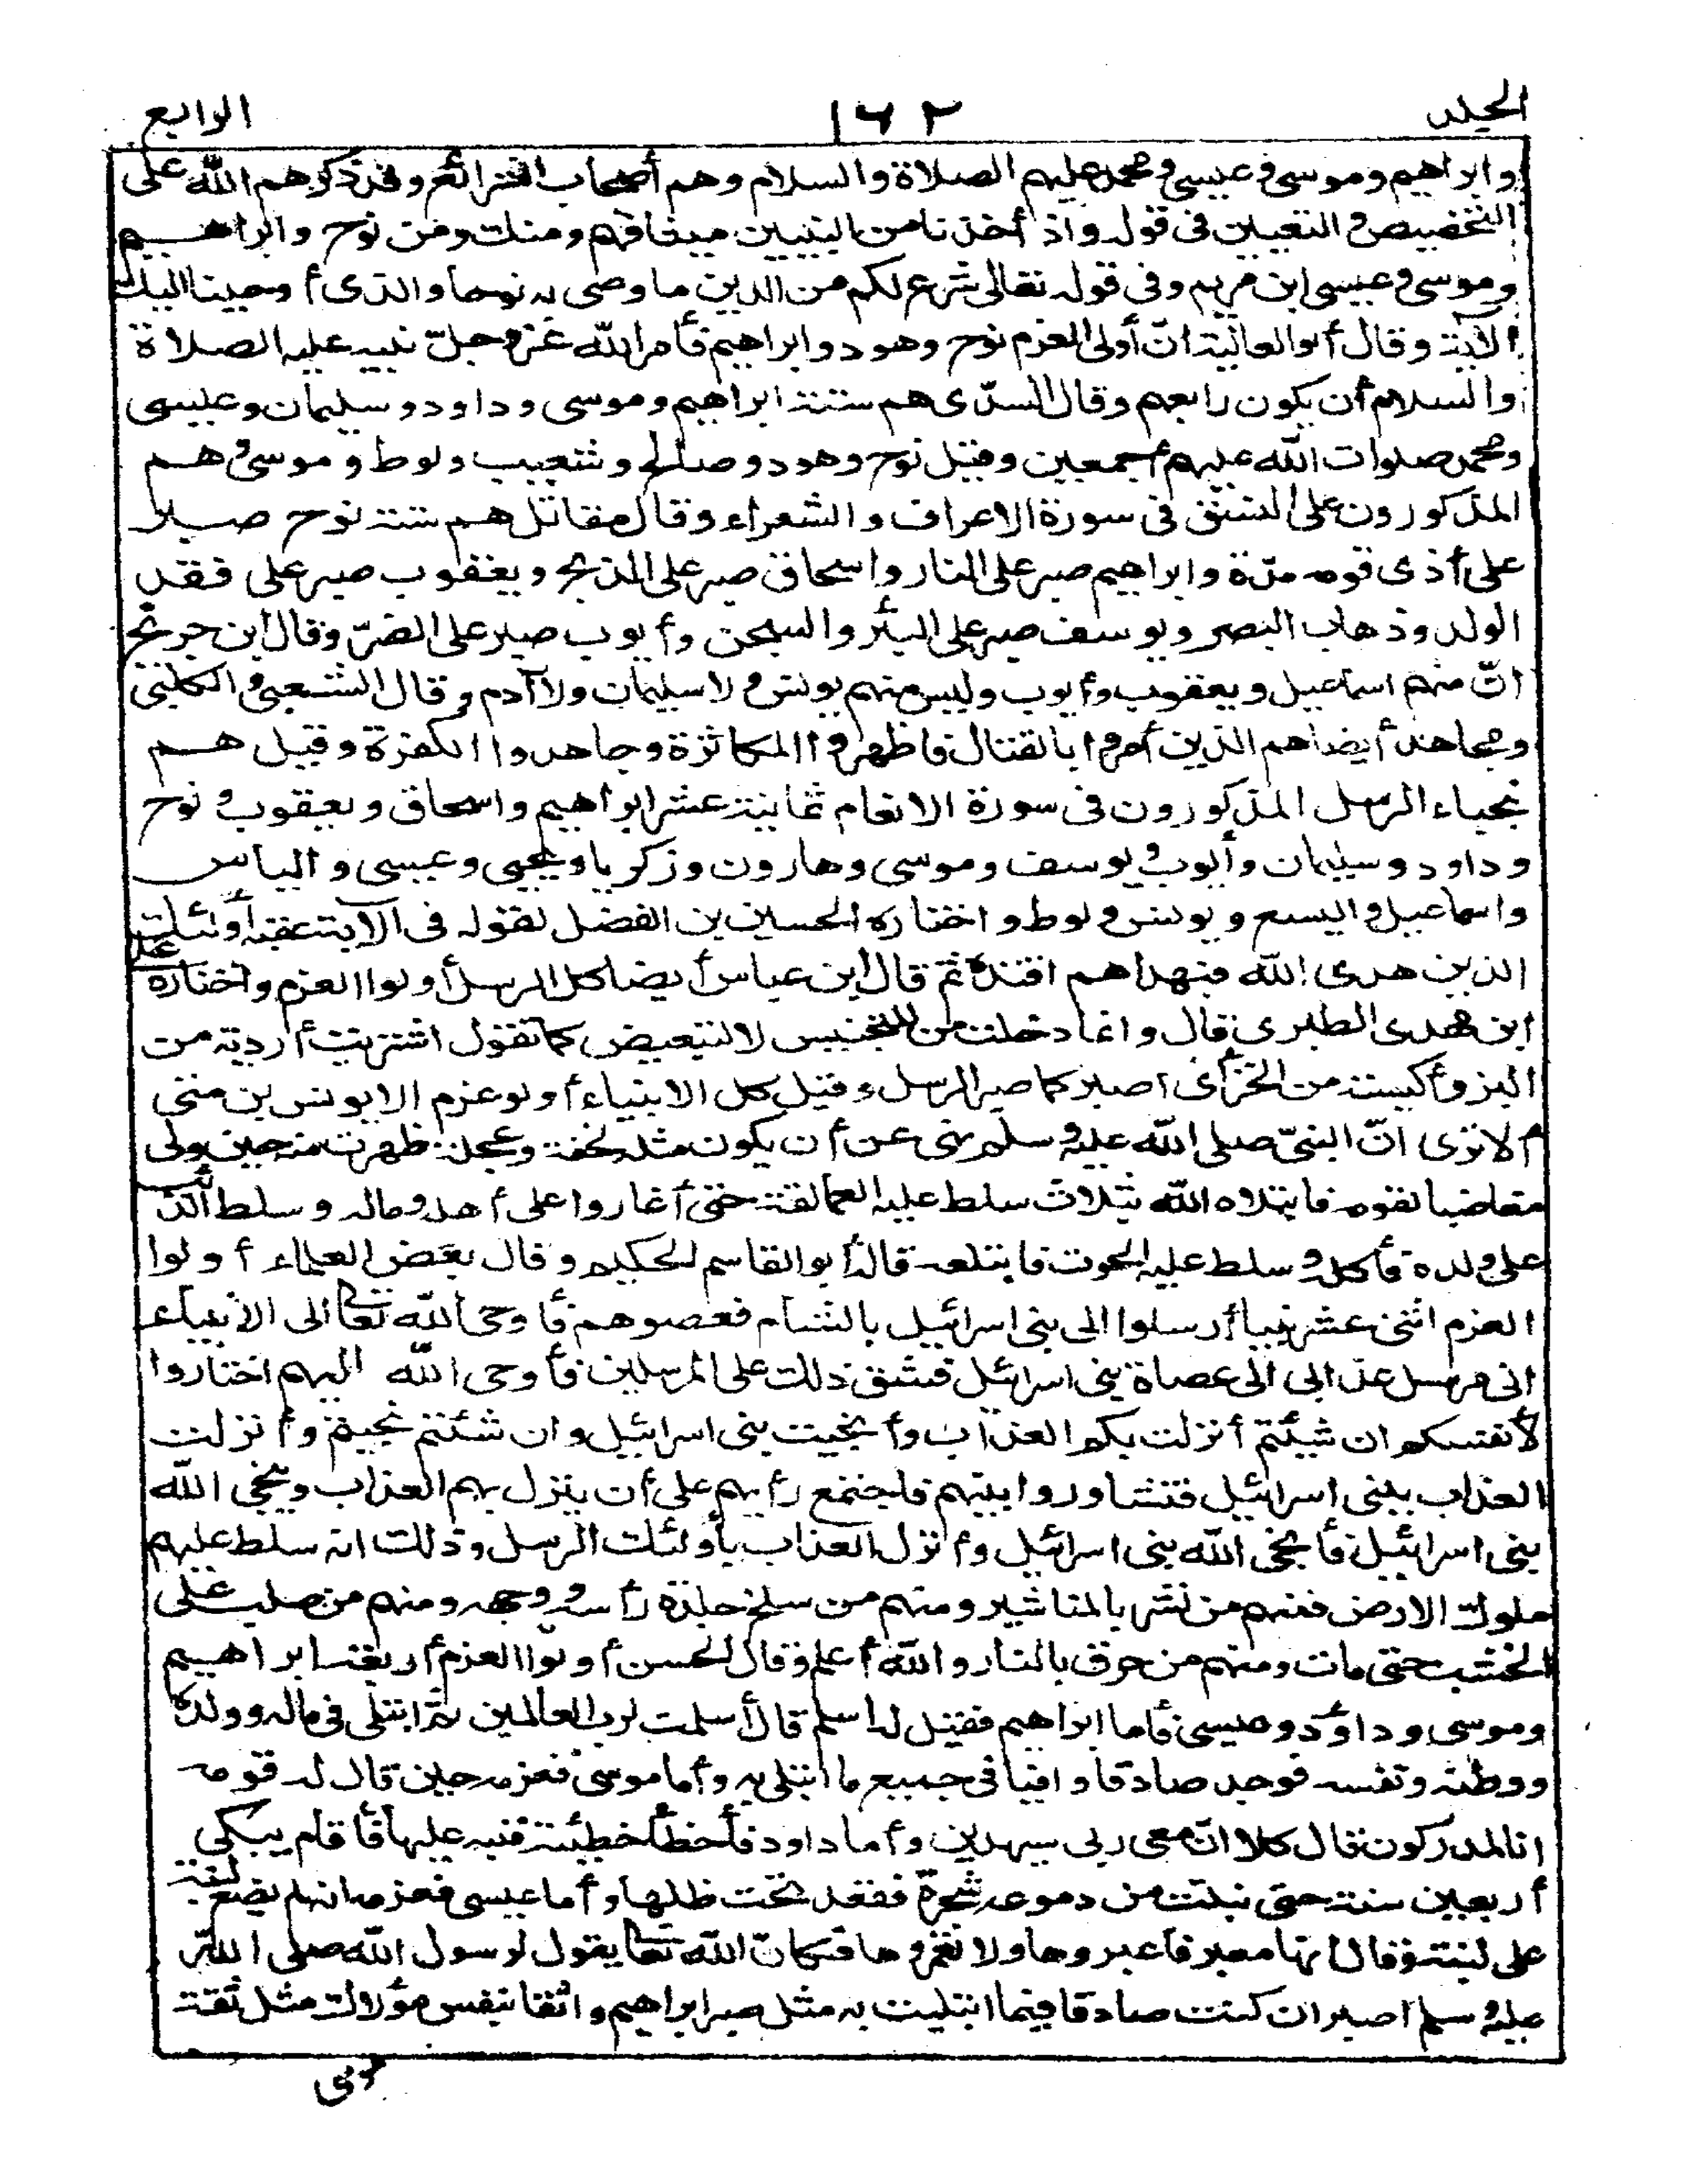 الجلد ١٦٢ الرابع
وابراهيم وموسى وعيسى ومحمد عليهم الصلاة والسلام وهم أصحاب الشرائع وقد ذكرهم الله على
التخصيص والتعيين فى قوله واذ أخذنا من النبيين ميثاقهم ومنك ومن نوح وابراهيم
وموسى وعيسى ابن مريم وفى قوله تعالى شرع لكم من الدين ما وصى به نوحا والذى أوحينا اليك
الآية وقال أبو العالية انّ أولى العزم نوح وهود وابراهيم فأمر الله عز وجلّ نبيه عليه الصلاة
والسلام أن يكون رابعهم وقال السدّى هم ستة ابراهيم وموسى وداود وسليمان وعيسى
ومحمد صلوات الله عليهم أجمعين وقيل نوح وهود وصالح وشعيب ولوط وموسى وهم
المذكورون على النسق فى سورة الاعراف والشعراء وقال مقاتل هم ستة نوح صبر
على أذى قومه مدّة وابراهيم صبر على النار واسحاق صبر على الذبح ويعقوب صبر على فقد
الولد وذهاب البصر ويوسف صبر على البئر والسجن وأيوب صبر على الضرّ وقال ابن جريج
انّ منهم اسماعيل ويعقوب وأيوب وليس منهم يونس ولا سليمان ولا آدم وقال الشعبى والكلبى
ومجاهد أيضا هم الذين أمروا بالقتال فاظهروا المكاثرة وجاهدوا الكفرة وقيل هم
نجباء الرسل المذكورون فى سورة الانعام ثمانية عشر ابراهيم واسحاق ويعقوب ونوح
وداود وسليمان وأيوب ويوسف وموسى وهارون وزكريا ويحيى وعيسى والياس
واسماعيل واليسع ويونس ولوط واختاره الحسين بن الفضل لقوله فى الآية عقبه أولئك
الذين هدى الله فبهداهم اقتده ثمّ قال ابن عباس أيضا كل الرسل أولوا العزم واختاره على
ابن مهدى الطبرى قال وانما دخلت من للتجنيس لا للتبعيض كما تقول اشتريت أردية من
البز وأكيسة من الخز أى اصبر كما صبر الرسل وقيل كل الانبياء أولو عزم الا يونس بن متى
ألا ترى انّ النبىّ صلى الله عليه وسلم نهى عن أن يكون مثله لخفة وعجلة ظهرت منه حين ولى
مغاضبا لقومه فابتلاه الله بثلاث سلط عليه العمالقة حتى أغاروا على أهله وماله وسلط الذئب
على ولده فأكله وسلط عليه الحوت فابتلعه قاله أبو القاسم الحكيم وقال بعض العلماء أولوا
العزم اثنى عشر نبيا أرسلوا الى بنى اسرائيل بالشأم فعصوهم فأوحى الله تعالى الى الانبياء
انى مرسل عذابى الى عصاة بنى اسرائيل فشق ذلك على المرسلين فأوحى الله اليهم اختاروا
لأنفسكم ان شئتم أنزلت بكم العذاب وأنجيت بنى اسرائيل وان شئتم نجيتم وأنزلت
العذاب ببنى اسرائيل فتشاوروا بينهم فاجتمع رأيهم على أن ينزل بهم العذاب وينجى الله
بنى اسرائيل فأنجى الله بنى اسرائيل وأنزل العذاب بأولئك الرسل وذلك انه سلط عليهم
ملوك الارض فمنهم من نشر بالمناشير ومنهم من سلخ جلدة رأسه ووجهه ومنهم من صلب على
الخشب حتى مات ومنهم من حرق بالنار والله أعلم وقال الحسن أولوا العزم أربعة ابراهيم
وموسى وداود وعيسى فأما ابراهيم فقيل له اسلم قال أسلمت لرب العالمين ثم ابتلى فى ماله وولده
ووطنه ونفسه فوجد صادقا وافيا فى جميع ما ابتلى به وأما موسى فعزمه حين قال له قومه
انا لمدركون قال كلا انّ معى ربى سيهدين وأما داود فأخطأ خطيئته فنبه عليها فأقام يبكى
أربعين سنة حتى نبتت من دموعه شجرة فقعد تحت ظلها وأما عيسى فعزمه انه لم يضع لبنة
على لبنة وقال انها معبر فاعبروها ولا تعمروها فكانّ الله تعالى يقول لرسول الله صلى الله
عليه وسلم اصبر ان كنت صادقا فيما ابتليت به مثل صبر ابراهيم واثقا بنفس مولاك مثل ثقة